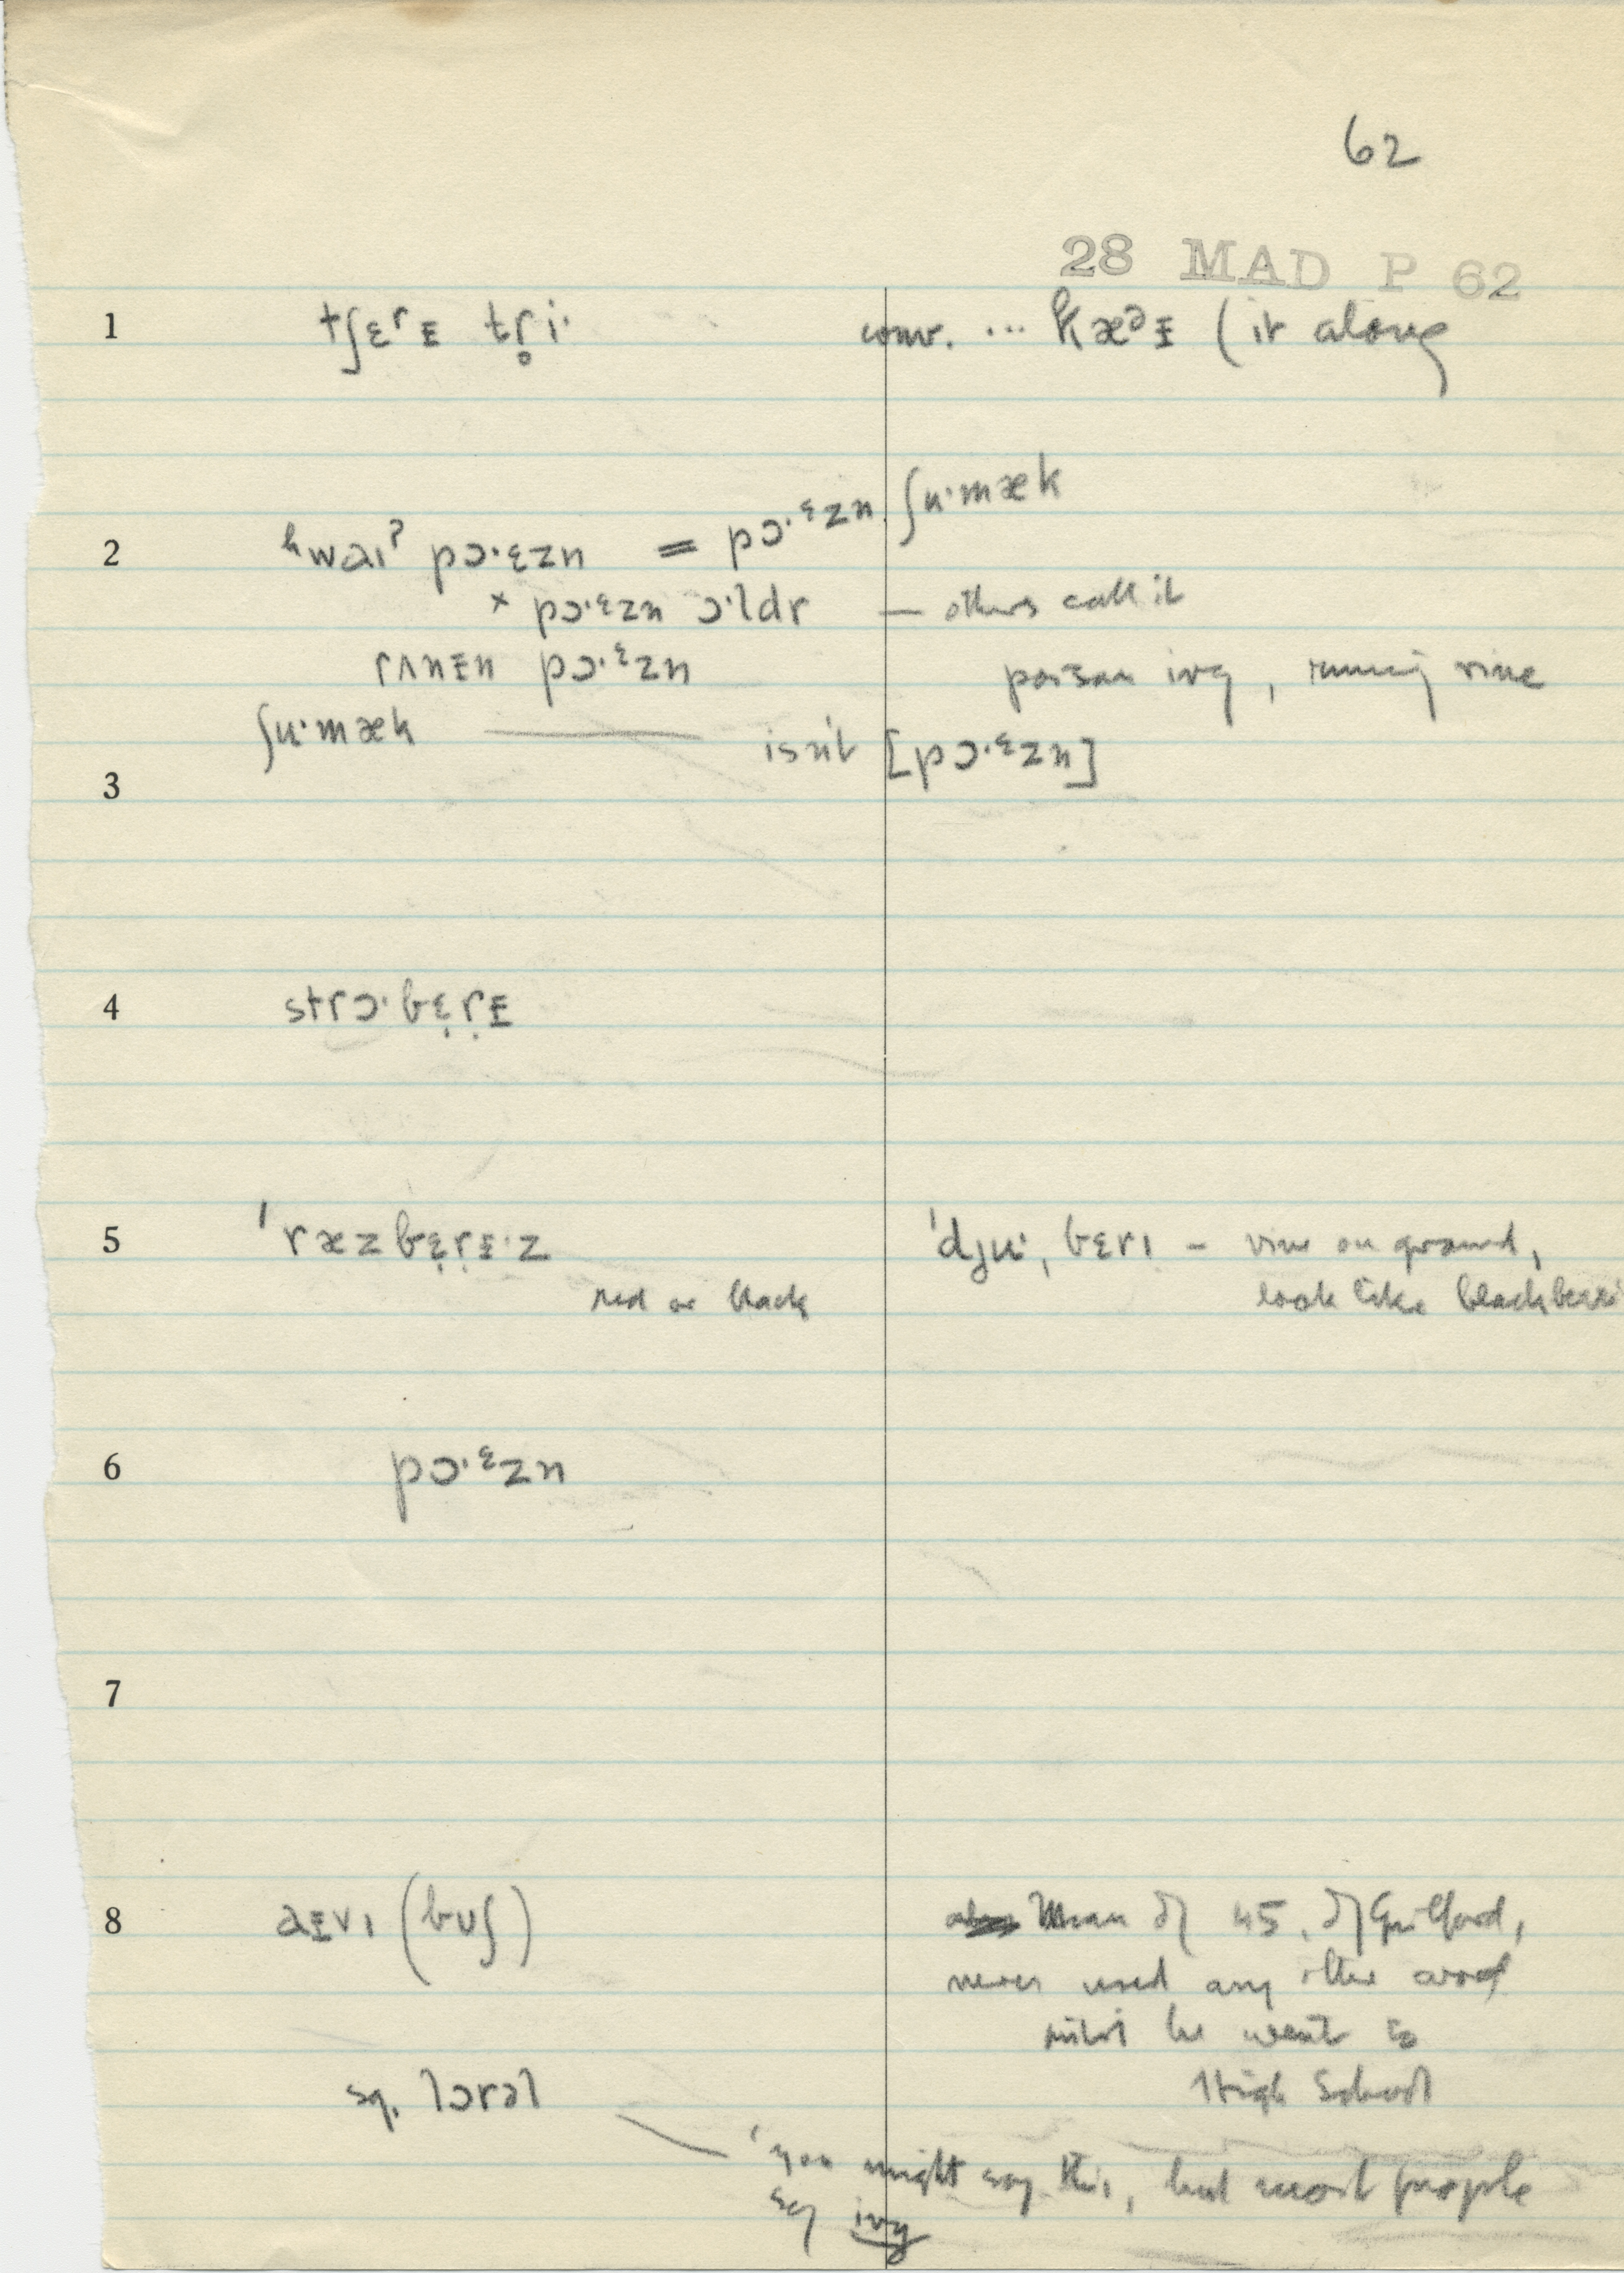 62
28 MAD P 62
1 tʃɛʳᴇ tr̥i· conv. ... kæᵊᵻ (it along
2 ʰwaıˀ pɔ·ɛzn = pɔ·ᵋzn ʃu·mæk
× pɔ·ᵋzn ɔ·ldr — others call it
rʌnᵻn pɔ·ᵋzn poison ivy, running vine
ʃu·mæk — isn't [pɔ·ᵋzn]
3
4 strɔ·bɛ̣ṛᵻ
5 ˈræzbɛ̣ṛᵻ·z ˈdju·ˌbɛrı – vine on ground,
red or black look like blackberri
6 pɔ·ᵋzn
7
8 aᵻvı (buʃ) Man of 45, of Guilford,
never used any other word
until he went to
sg. lɔrəl High School
'you might say this, but most people
say ivy